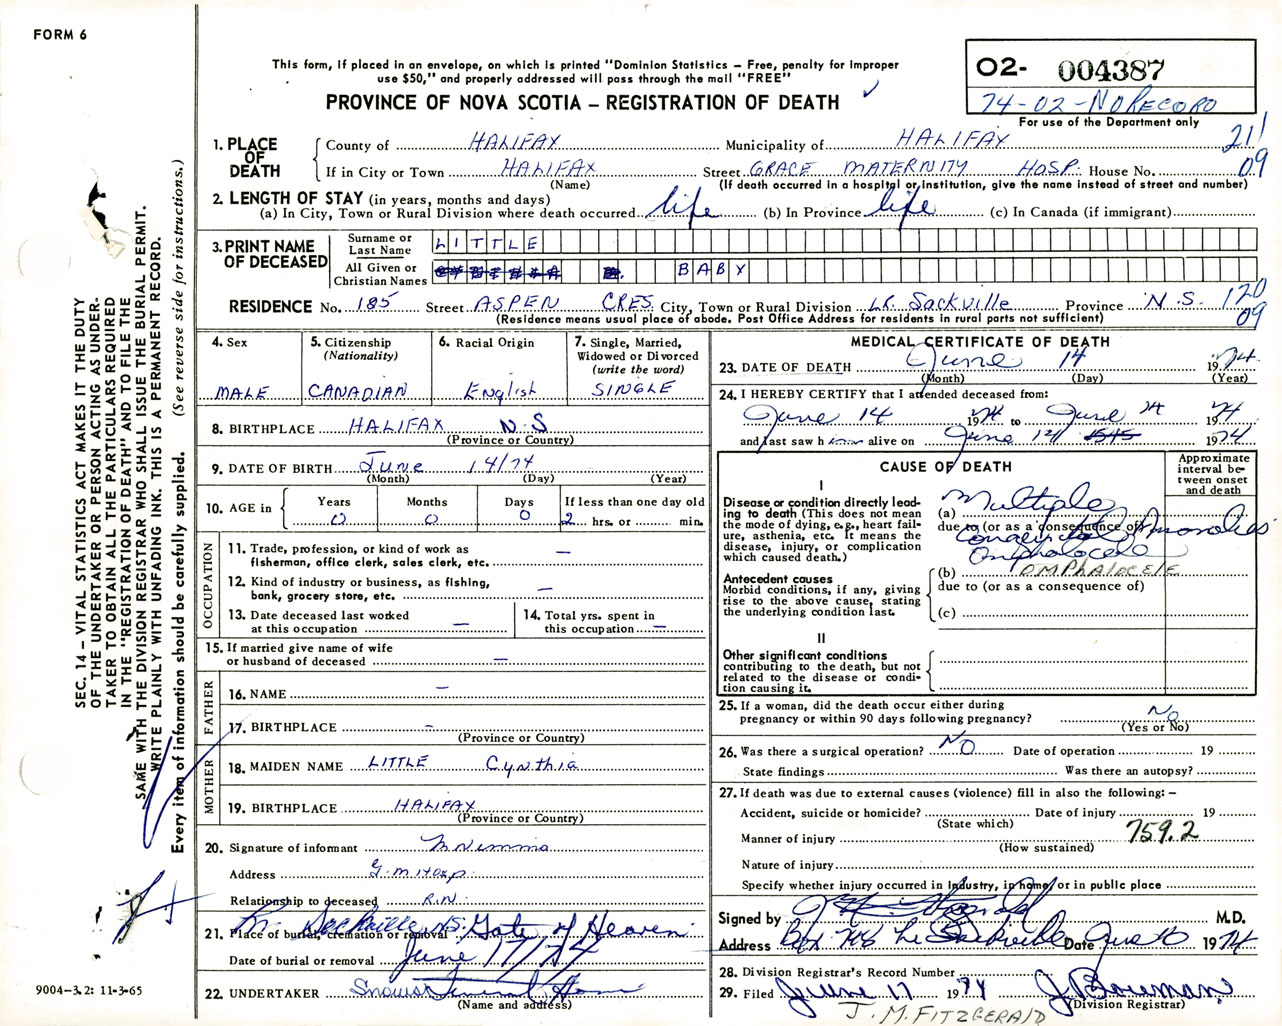 FORM 6
This form, if placed in an envelope, on which is printed "Dominion Statistics – Free, penalty for improper
use $50," and properly addressed will pass through the mail "FREE"
PROVINCE OF NOVA SCOTIA – REGISTRATION OF DEATH
02- 004387
74-02-NO RECORD
For use of the Department only
1. PLACE OF DEATH
County of HALIFAX Municipality of HALIFAX 211
If in City or Town HALIFAX Street GRACE MATERNITY HOSP. House No. 09
(Name) (If death occurred in a hospital or institution, give the name instead of street and number)
2. LENGTH OF STAY (in years, months and days)
(a) In City, Town or Rural Division where death occurred life (b) In Province life (c) In Canada (if immigrant)
3. PRINT NAME OF DECEASED
Surname or Last Name LITTLE
All Given or Christian Names BABY
RESIDENCE No. 185 Street ASPEN CRES. City, Town or Rural Division LR. Sackville Province N.S. 120
(Residence means usual place of abode. Post Office Address for residents in rural parts not sufficient) 09
4. Sex MALE
5. Citizenship (Nationality) CANADIAN
6. Racial Origin English
7. Single, Married, Widowed or Divorced (write the word) SINGLE
8. BIRTHPLACE HALIFAX N.S
(Province or Country)
9. DATE OF BIRTH June 14/74
(Month) (Day) (Year)
10. AGE in Years 0 Months 0 Days 0 If less than one day old 2 hrs. or min.
OCCUPATION
11. Trade, profession, or kind of work as
fisherman, office clerk, sales clerk, etc. —
12. Kind of industry or business, as fishing,
bank, grocery store, etc. —
13. Date deceased last worked
at this occupation —
14. Total yrs. spent in
this occupation —
15. If married give name of wife
or husband of deceased —
FATHER
16. NAME –
17. BIRTHPLACE –
(Province or Country)
MOTHER
18. MAIDEN NAME LITTLE Cynthia
19. BIRTHPLACE HALIFAX
(Province or Country)
20. Signature of informant
Address G.M. Hosp.
Relationship to deceased R.N.
21. Place of burial, cremation or removal Lr. Sackville NS. Gate of Heaven
Date of burial or removal June 17/74
22. UNDERTAKER Snows Funeral Home
(Name and address)
MEDICAL CERTIFICATE OF DEATH
23. DATE OF DEATH June 14 1974
(Month) (Day) (Year)
24. I HEREBY CERTIFY that I attended deceased from:
June 14 1974 to June 14 1974
and last saw h alive on June 14 1974
CAUSE OF DEATH
Approximate interval between onset and death
I
Disease or condition directly leading to death (This does not
mean the mode of dying, e.g., heart failure, asthenia, etc. It means the
disease, injury, or complication
which caused death.)
(a) Multiple
due to (or as a consequence of)
Congenital Anomalies
Omphalocele
Antecedent causes
Morbid conditions, if any, giving
rise to the above cause, stating
the underlying condition last.
(b) OMPHALOCELE
due to (or as a consequence of)
(c)
II
Other significant conditions
contributing to the death, but not
related to the disease or condition causing it.
25. If a woman, did the death occur either during
pregnancy or within 90 days following pregnancy? No
(Yes or No)
26. Was there a surgical operation? NO Date of operation 19
State findings Was there an autopsy?
27. If death was due to external causes (violence) fill in also the following: –
Accident, suicide or homicide? Date of injury 19
(State which)
Manner of injury 759.2
(How sustained)
Nature of injury
Specify whether injury occurred in Industry, in home, or in public place
Signed by M.D.
Address Box 706 Lr Sackville Date June 1974
28. Division Registrar's Record Number
29. Filed June 17 1974 J Bowman
(Division Registrar)
J. M. FITZGERALD
SEC. 14 – VITAL STATISTICS ACT MAKES IT THE DUTY
OF THE UNDERTAKER OR PERSON ACTING AS UNDER-
TAKER TO OBTAIN ALL THE PARTICULARS REQUIRED
IN THE "REGISTRATION OF DEATH" AND TO FILE THE
SAME WITH THE DIVISION REGISTRAR WHO SHALL ISSUE THE BURIAL PERMIT.
WRITE PLAINLY WITH UNFADING INK. THIS IS A PERMANENT RECORD.
Every item of information should be carefully supplied. (See reverse side for instructions.)
9004-3.2: 11-3-65